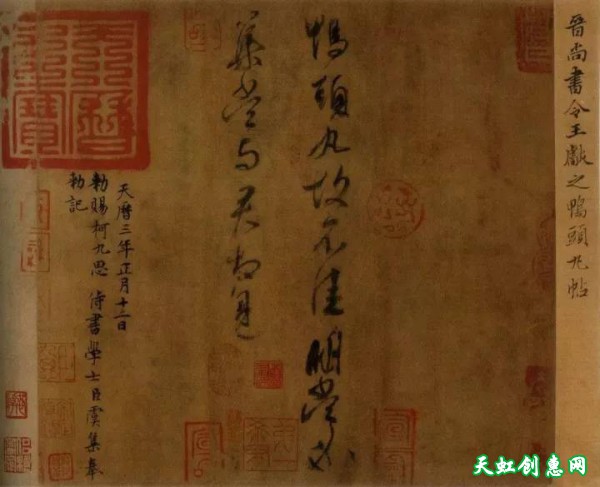 晋尚書令王獻之鴨頭丸帖
鴨頭丸故不佳明當必
集當與君相見
天曆之寶
天曆三年正月十二日
勑賜柯九思侍書學士臣虞集奉
勑記
天虹创惠网